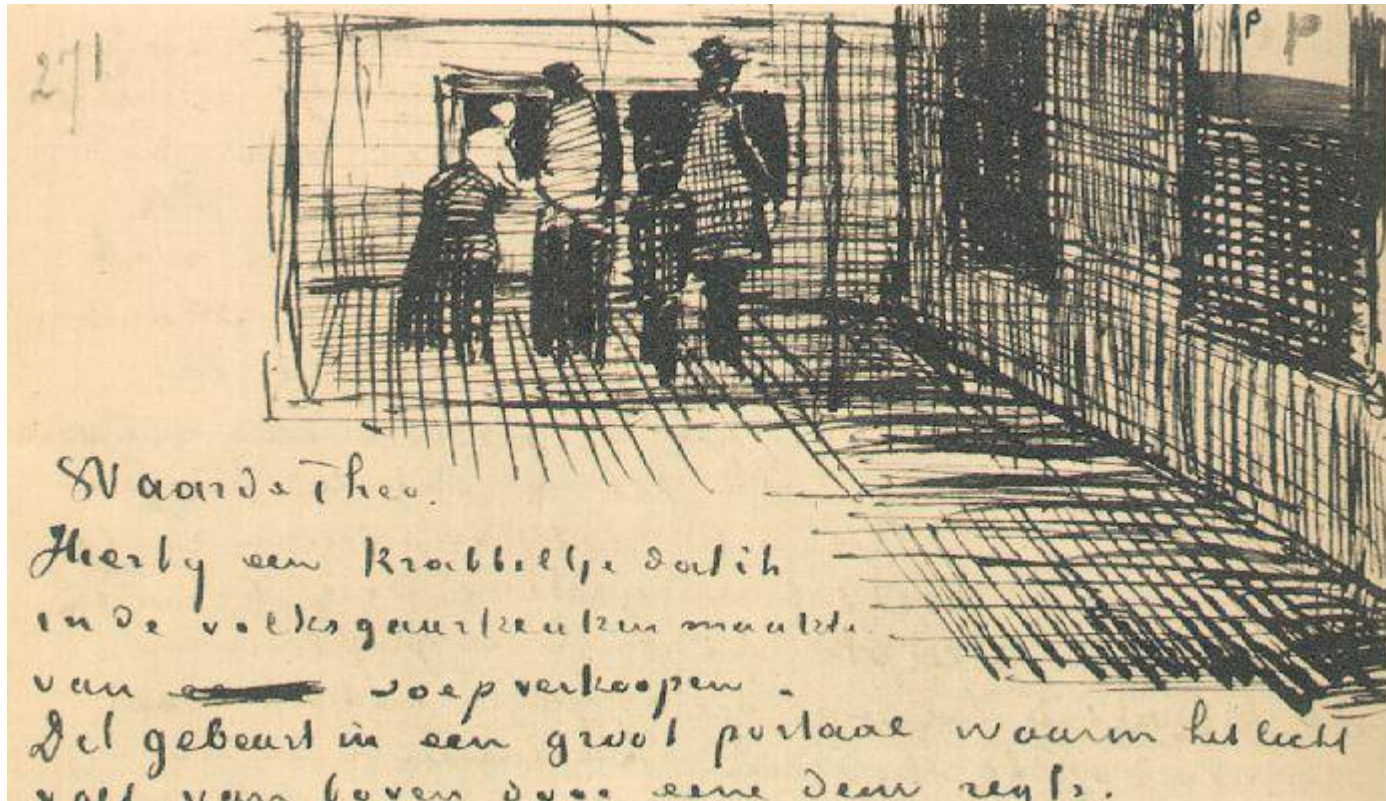 271
p p
Waarde Theo.
Hierby een krabbeltje dat ik
in de volksgaarkeuken maakte
van soepverkoopen.
Dit gebeurt in een groot portaal waarin het licht
valt van boven door eene deur regts.